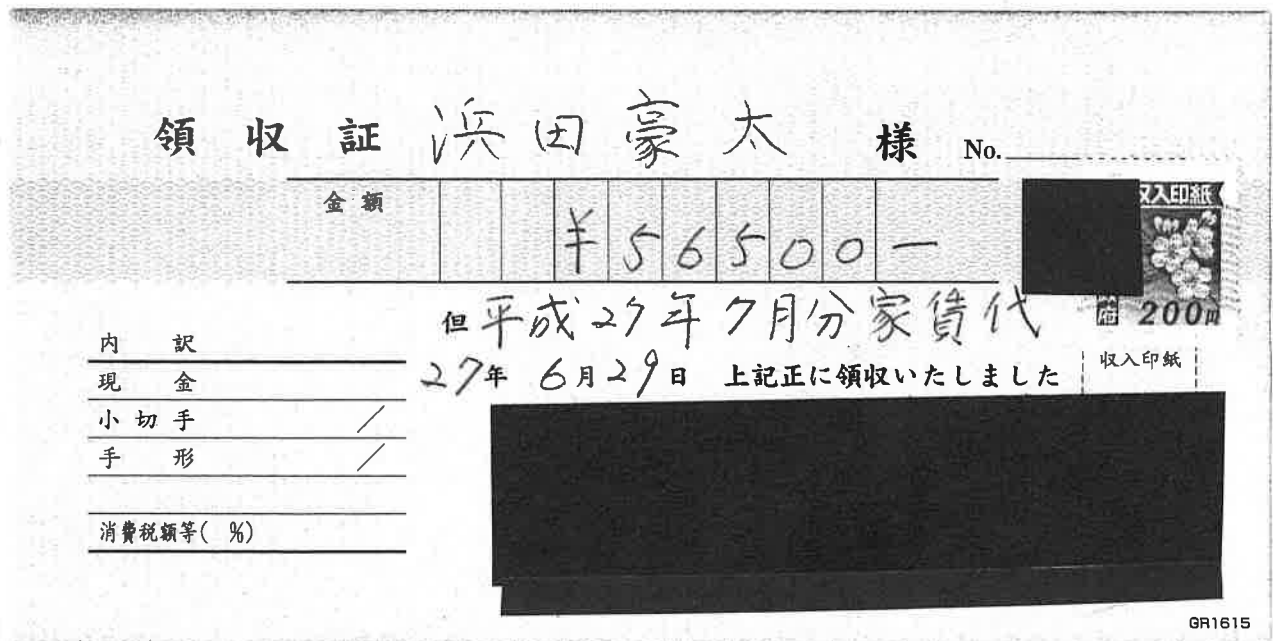 領収証 浜田豪太 様 No.
金額 ¥56500-
収入印紙
200円
但 平成27年7月分家賃代
27年 6月29日 上記正に領収いたしました
収入印紙
内訳
現金
小切手 /
手形 /
消費税額等( %)
GR1615